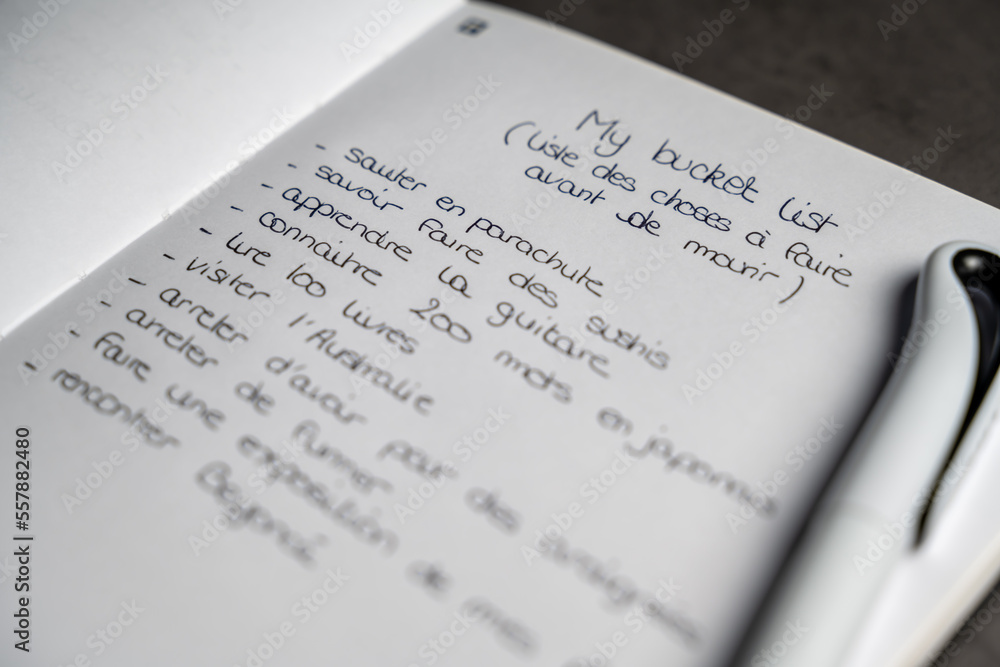 My bucket list
(Liste des choses à faire
avant de mourir)
- sauter en parachute
- savoir faire des sushis
- apprendre la guitare
- connaitre 200 mots en japonais
- lire 100 livres
- visiter l'Australie
- arreter d'avoir peur des
- arreter de fumer
- faire une exposition de mes
- rencontrer Beyoncé
Adobe Stock | #557882480